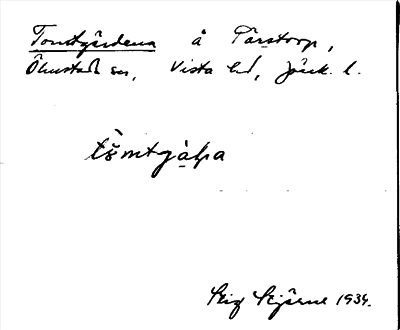 Tomtgärdena å Tärstorp,
Ölmstad sn, Vista hd, Jönk. l.
tomtgàḷa
Stig Stjärne 1934.